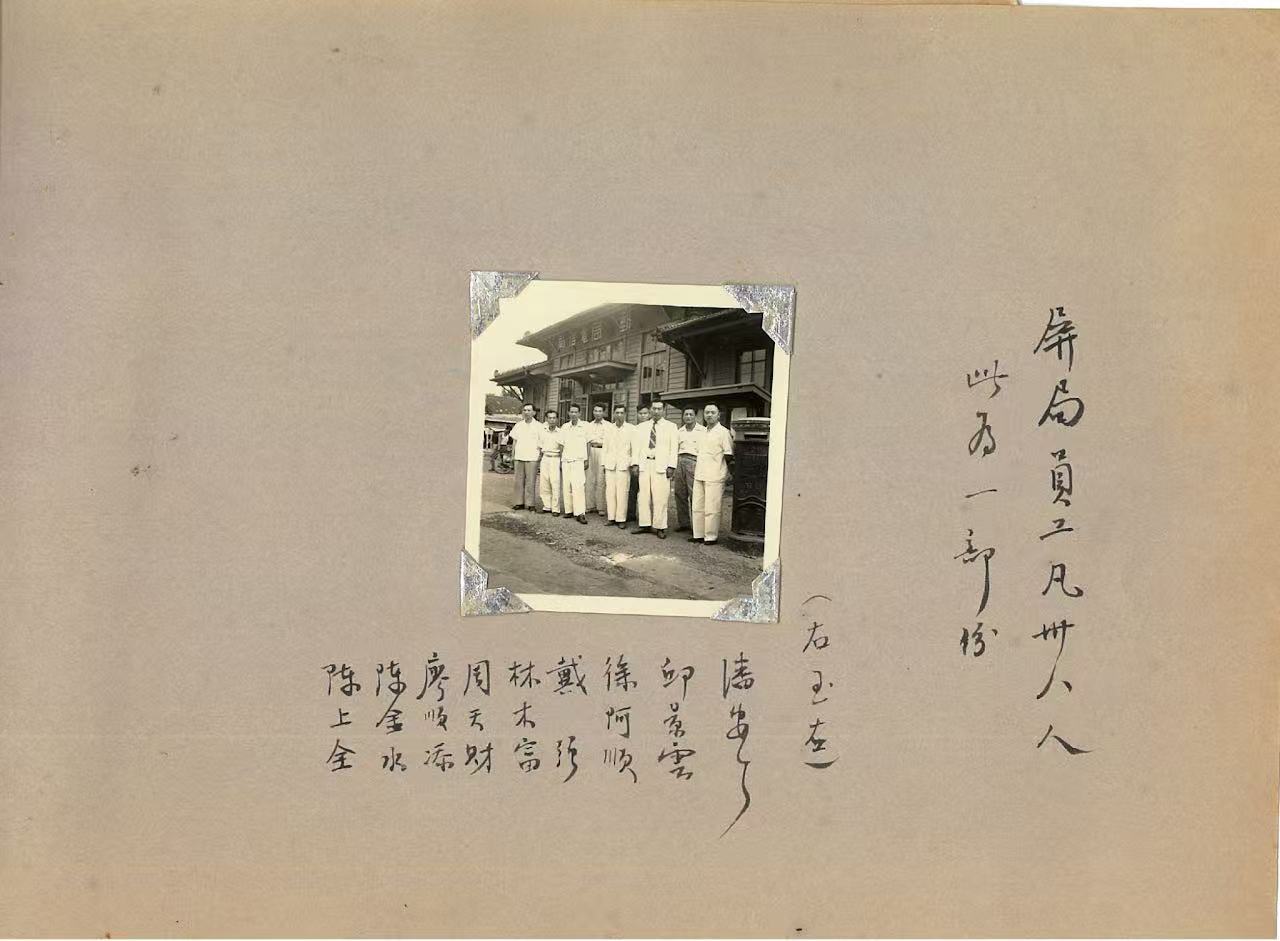 屏局員工凡卅八人
此為一部份
(右至左)
潘
邱景雲
徐阿順
戴強
林木富
周天財
廖順添
陳金水
陳上全